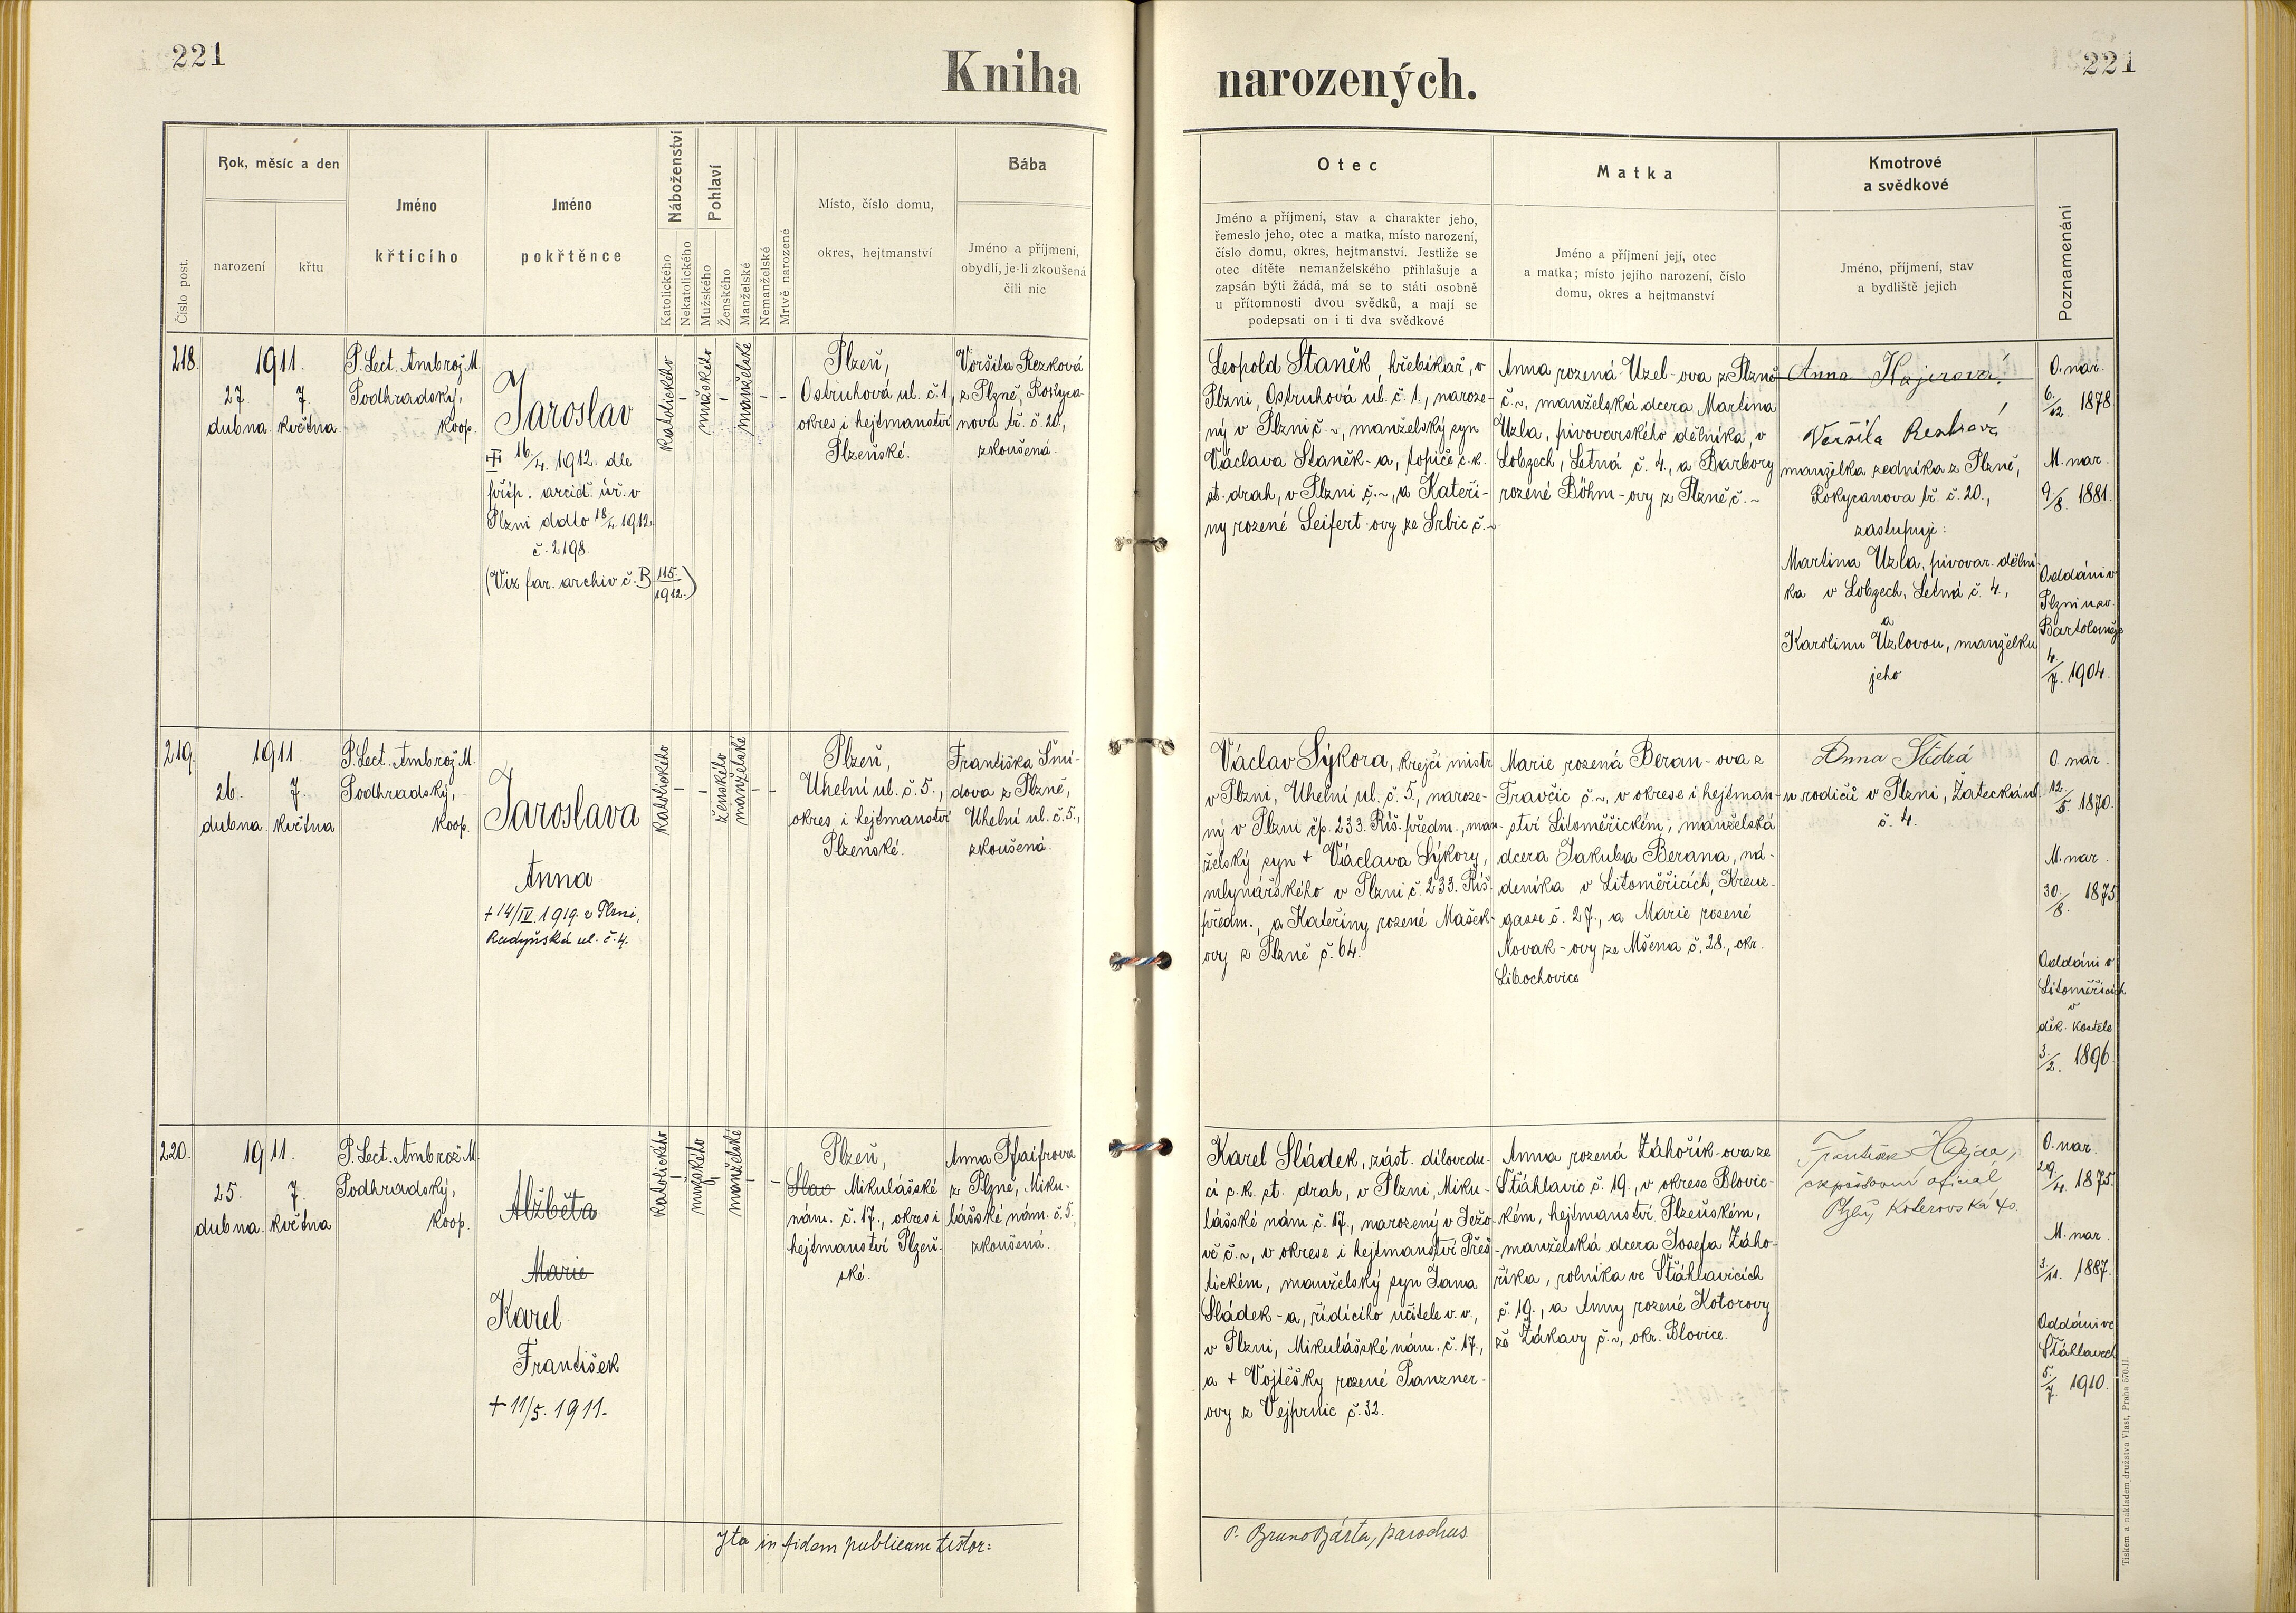 221
Kniha narozených.
221
Číslo post.
Rok, měsíc a den
narození
křtu
Jméno
křticího
Jméno
pokřtěnce
Náboženství
Katolického
Nekatolického
Pohlaví
Mužského
Ženského
Manželské
Nemanželské
Mrtvě narozené
Místo, číslo domu,
okres, hejtmanství
Bába
Jméno a příjmení,
obydlí, je-li zkoušená
čili nic
Otec
Jméno a příjmení, stav a charakter jeho,
řemeslo jeho, otec a matka, místo narození,
číslo domu, okres, hejtmanství. Jestliže se
otec dítěte nemanželského přihlašuje a
zapsán býti žádá, má se to státi osobně
u přítomnosti dvou svědků, a mají se
podepsati on i ti dva svědkové
Matka
Jméno a příjmení její, otec
a matka; místo jejího narození, číslo
domu, okres a hejtmanství
Kmotrové
a svědkové
Jméno, příjmení, stav
a bydliště jejich
Poznamenání
218.
1911.
27.
dubna
7.
května
P. Lect. Ambrož M.
Podhradský,
koop.
Jaroslav
16/4. 1912. dle
příp. arcid. úř. v
Plzni ddto 18/4. 1912.
č. 2198.
(Viz far. archiv č. B 115./1912.)
katolického
mužského
manželské
Plzeň,
Ostruhová ul. č. 1.,
okres i hejtmanství
Plzeňské.
Voršila Rezková
z Plzně, Rokyca-
nova tř. č. 20,
zkoušená.
Leopold Staněk, hřebíkař, v
Plzni, Ostruhová ul. č. 1., naroze-
ný v Plzni č. ~, manželský syn
Václava Staněk-a, topiče c. k.
st. drah, v Plzni č. ~, a Kateři-
ny rozené Seifert-ovy ze Srbic č. ~
Anna rozená Uzel-ova z Plzně
č. ~, manželská dcera Martina
Uzla, pivovarského dělníka, v
Lobzech, Letná č. 4., a Barbory
rozené Böhm-ovy z Plzně č. ~
Anna Hajerová
Voršila
manželka zedníka z Plzně,
Rokycanova tř. č. 20.,
zastupuje:
Martina Uzla, pivovar. dělní-
ka v Lobzech, Letná č. 4.,
a
Karolinu Uzlovou, manželku
jeho
O. nar.
6./12. 1878.
M. nar.
9/8. 1881.
Oddáni v
Plzni u sv.
Bartoloměje
4./7. 1904.
219.
1911.
26.
dubna
7.
května
P. Lect. Ambrož M.
Podhradský,
koop.
Jaroslava
Anna
+ 14/IV. 1919. v Plzni,
Radyňská ul. č. 4.
katolického
ženského
manželské
Plzeň,
Uhelní ul. č. 5.,
okres i hejtmanství
Plzeňské.
Františka Šmí-
dova z Plzně,
Uhelní ul. č. 5.,
zkoušená.
Václav Sýkora, krejčí mistr
v Plzni, Uhelní ul. č. 5., naroze-
ný v Plzni čp. 233. Říš. předm., man-
želský syn + Václava Sýkory,
mlynářského v Plzni č. 233. Říš.
předm., a Kateřiny rozené Mašek-
ovy z Plzně č. 64.
Marie rozená Beran-ova z
Travčic č. ~, v okrese i hejtman-
ství Litoměřickém, manželská
dcera Jakuba Berana, ná-
deníka v Litoměřicích, Kreuz-
gasse č. 27., a Marie rozené
Novak-ovy ze Mšena č. 28., okr.
Libochovice
Anna Štědrá
u rodičů v Plzni, Žatecká ul.
č. 4.
O. nar.
12./5. 1870.
M. nar.
30./8. 1875.
Oddáni v
Litoměřicích
v
děk. kostele
3./2. 1896.
220.
1911.
25.
dubna
7.
května
P. Lect. Ambrož M.
Podhradský,
koop.
Alžběta
Marie
Karel
František
+ 11/5. 1911.
katolického
mužského
manželské
Plzeň,
Slav Mikulášské
nám. č. 17., okres i
hejtmanství Plzeň-
ské.
Anna Pfaifrova
z Plzně, Miku-
lášské nám. č. 5.,
zkoušená.
Karel Sládek, zást. dílovedu-
cí c. k. st. drah, v Plzni, Miku-
lášské nám. č. 17., narozený v Ježo-
vě č. ~, v okrese i hejtmanství Přeš-
tickém, manželský syn Jana
Sládek-a, řídícího učitele v. v.,
v Plzni, Mikulášské nám. č. 17.,
a + Vojtěšky rozené Panzner-
ovy z Vejprnic č. 32.
Anna rozená Záhořík-ova ze
Šťáhlavic č. 19., v okrese Blovic-
kém, hejtmanství Plzeňském,
manželská dcera Josefa Záho-
říka, rolníka ve Šťáhlavicích
č. 19., a Anny rozené Kotorovy
ze Žákavy č. ~, okr. Blovice.
František Hajda,
oficiál
Koterovská 40.
O. nar.
29./4. 1875.
M. nar.
3./11. 1887.
Oddáni ve
Šťáhlavech
5./7. 1910.
Ita in fidem publicam testor:
P. Bruno Bárta, parochus.
Tiskem a nákladem družstva Vlast, Praha 570-II.